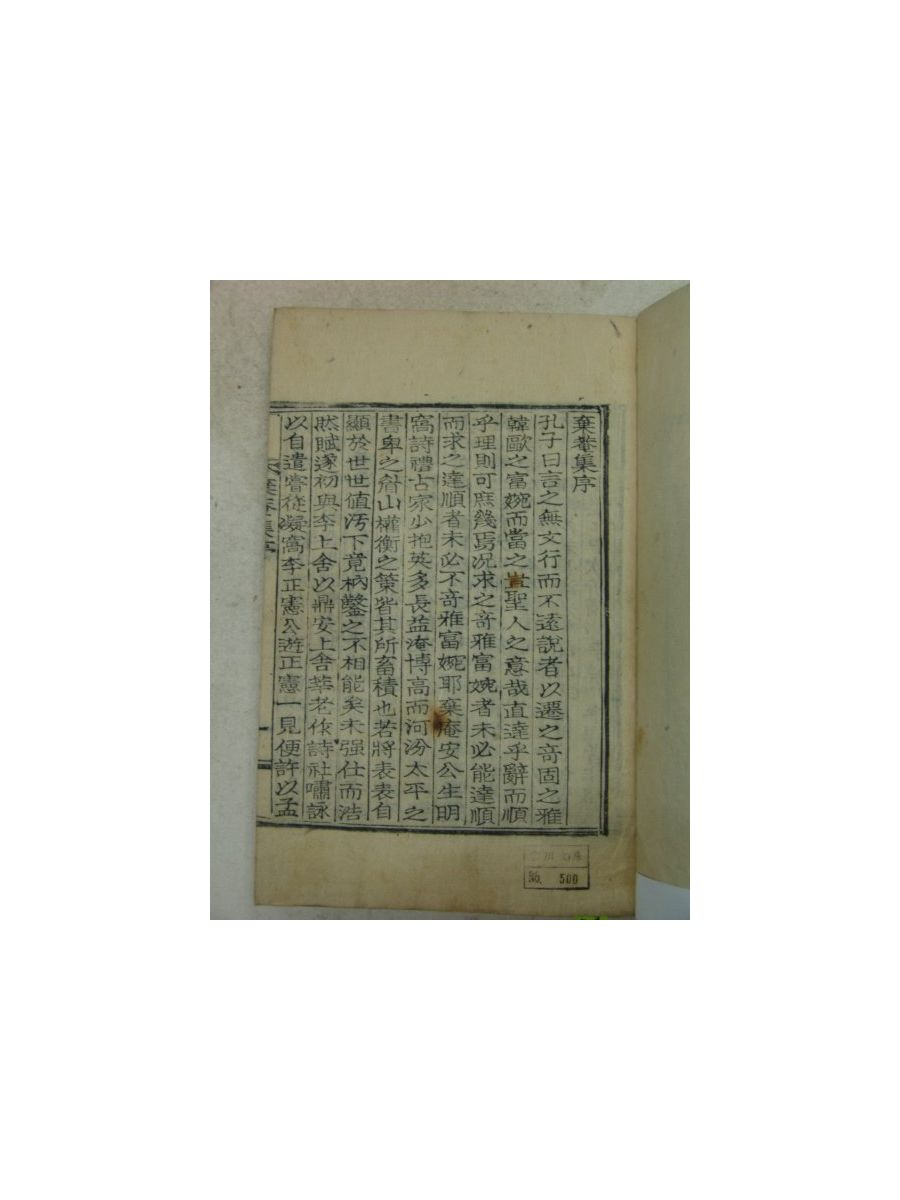 棄菴集序
孔子曰言之無文行而不遠說者以遷之奇固之雅
韓歐之富婉而當之豈聖人之意哉直達乎辭而順
乎理則可庶幾焉況求之奇雅富婉者未必能達順
而求之達順者未必不奇雅富婉耶棄庵安公生明
窩詩禮古家少抱英多長益淹博高而河汾太平之
書卑之眉山權衡之策皆其所畜積也若將表表自
顯於世世値汚下竟枘鑿之不相能矣未强仕而浩
然賦遂初與李上舍以鼎安上舍華老作詩社嘯詠
以自遣嘗從凝窩李正憲公遊正憲一見便許以孟
棄菴集序
一
No. 500